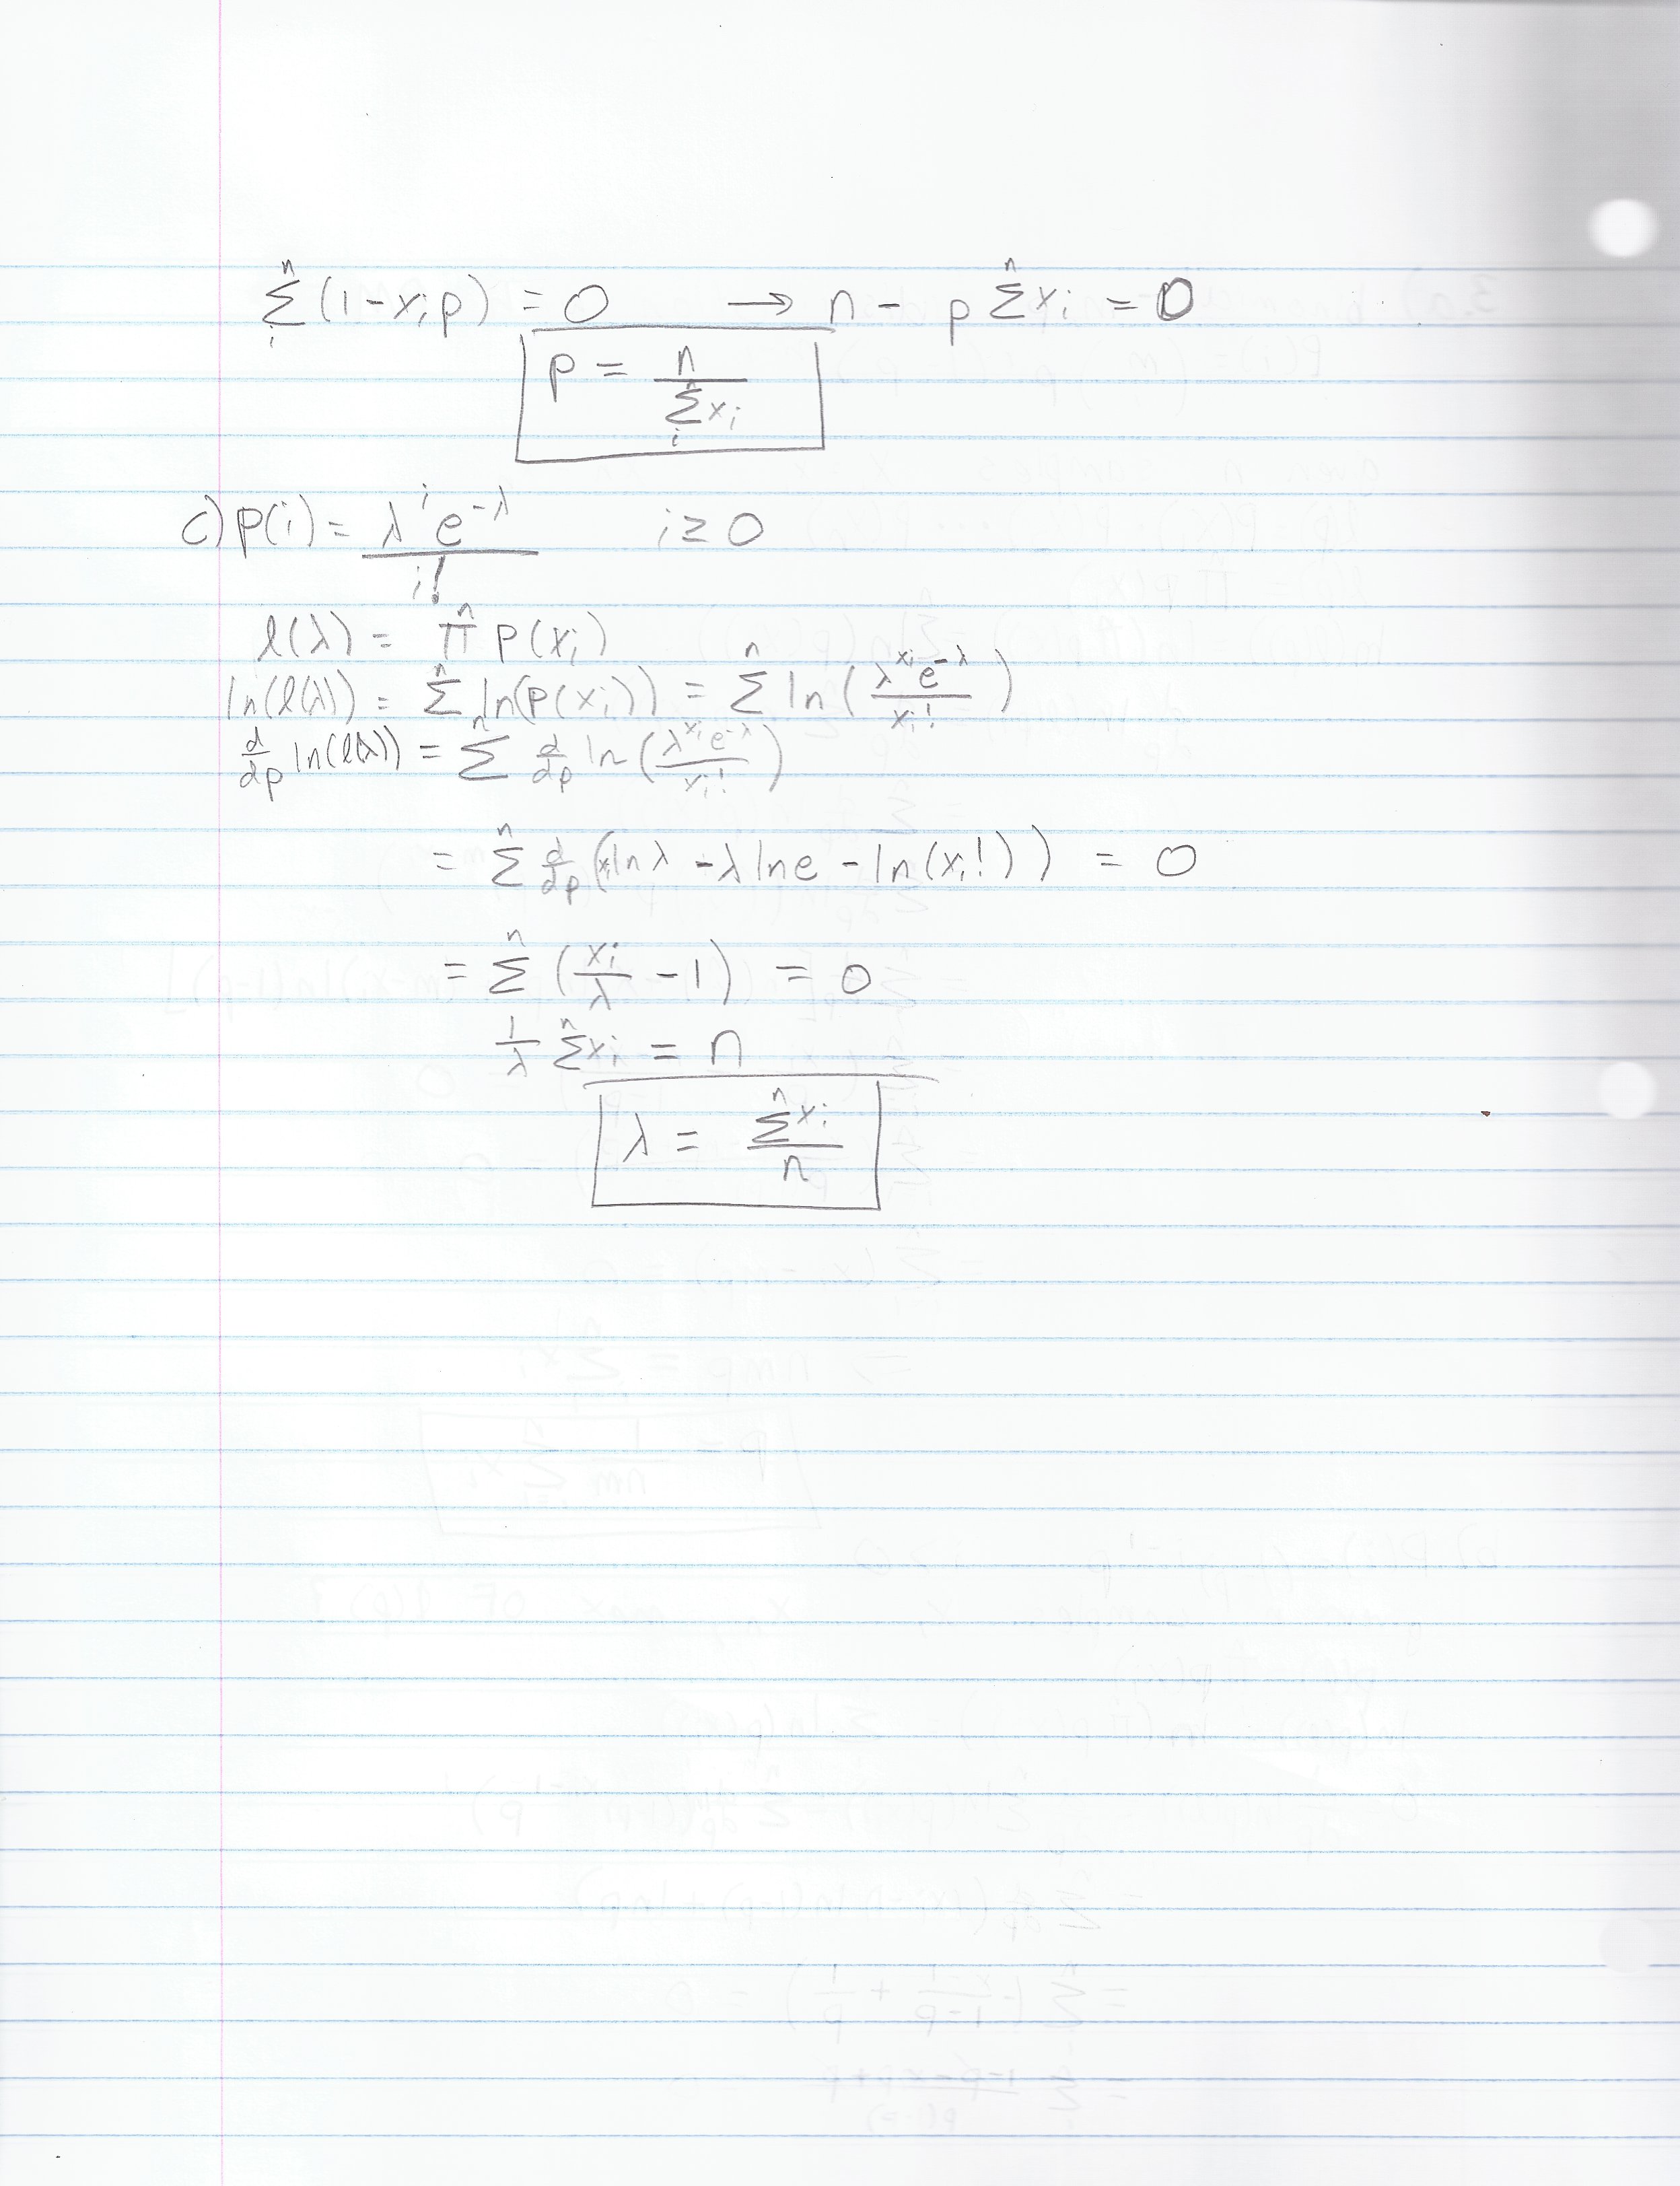 n∑i (1-xᵢp) = 0 → n - p n∑xᵢ = 0
p = n / n∑i xᵢ
c) p(i) = λⁱe^-λ / i! i ≥ 0
l(λ) = n∏ p(xᵢ)
ln(l(λ)) = n∑ ln(p(xᵢ)) = n∑ ln(λ^xᵢ e^-λ / xᵢ!)
d/dp ln(l(λ)) = n∑ d/dp ln(λ^xᵢ e^-λ / xᵢ!)
= n∑ d/dp (xᵢ ln λ - λ ln e - ln(xᵢ!)) = 0
= n∑ (xᵢ/λ - 1) = 0
1/λ n∑xᵢ = n
λ = n∑xᵢ / n